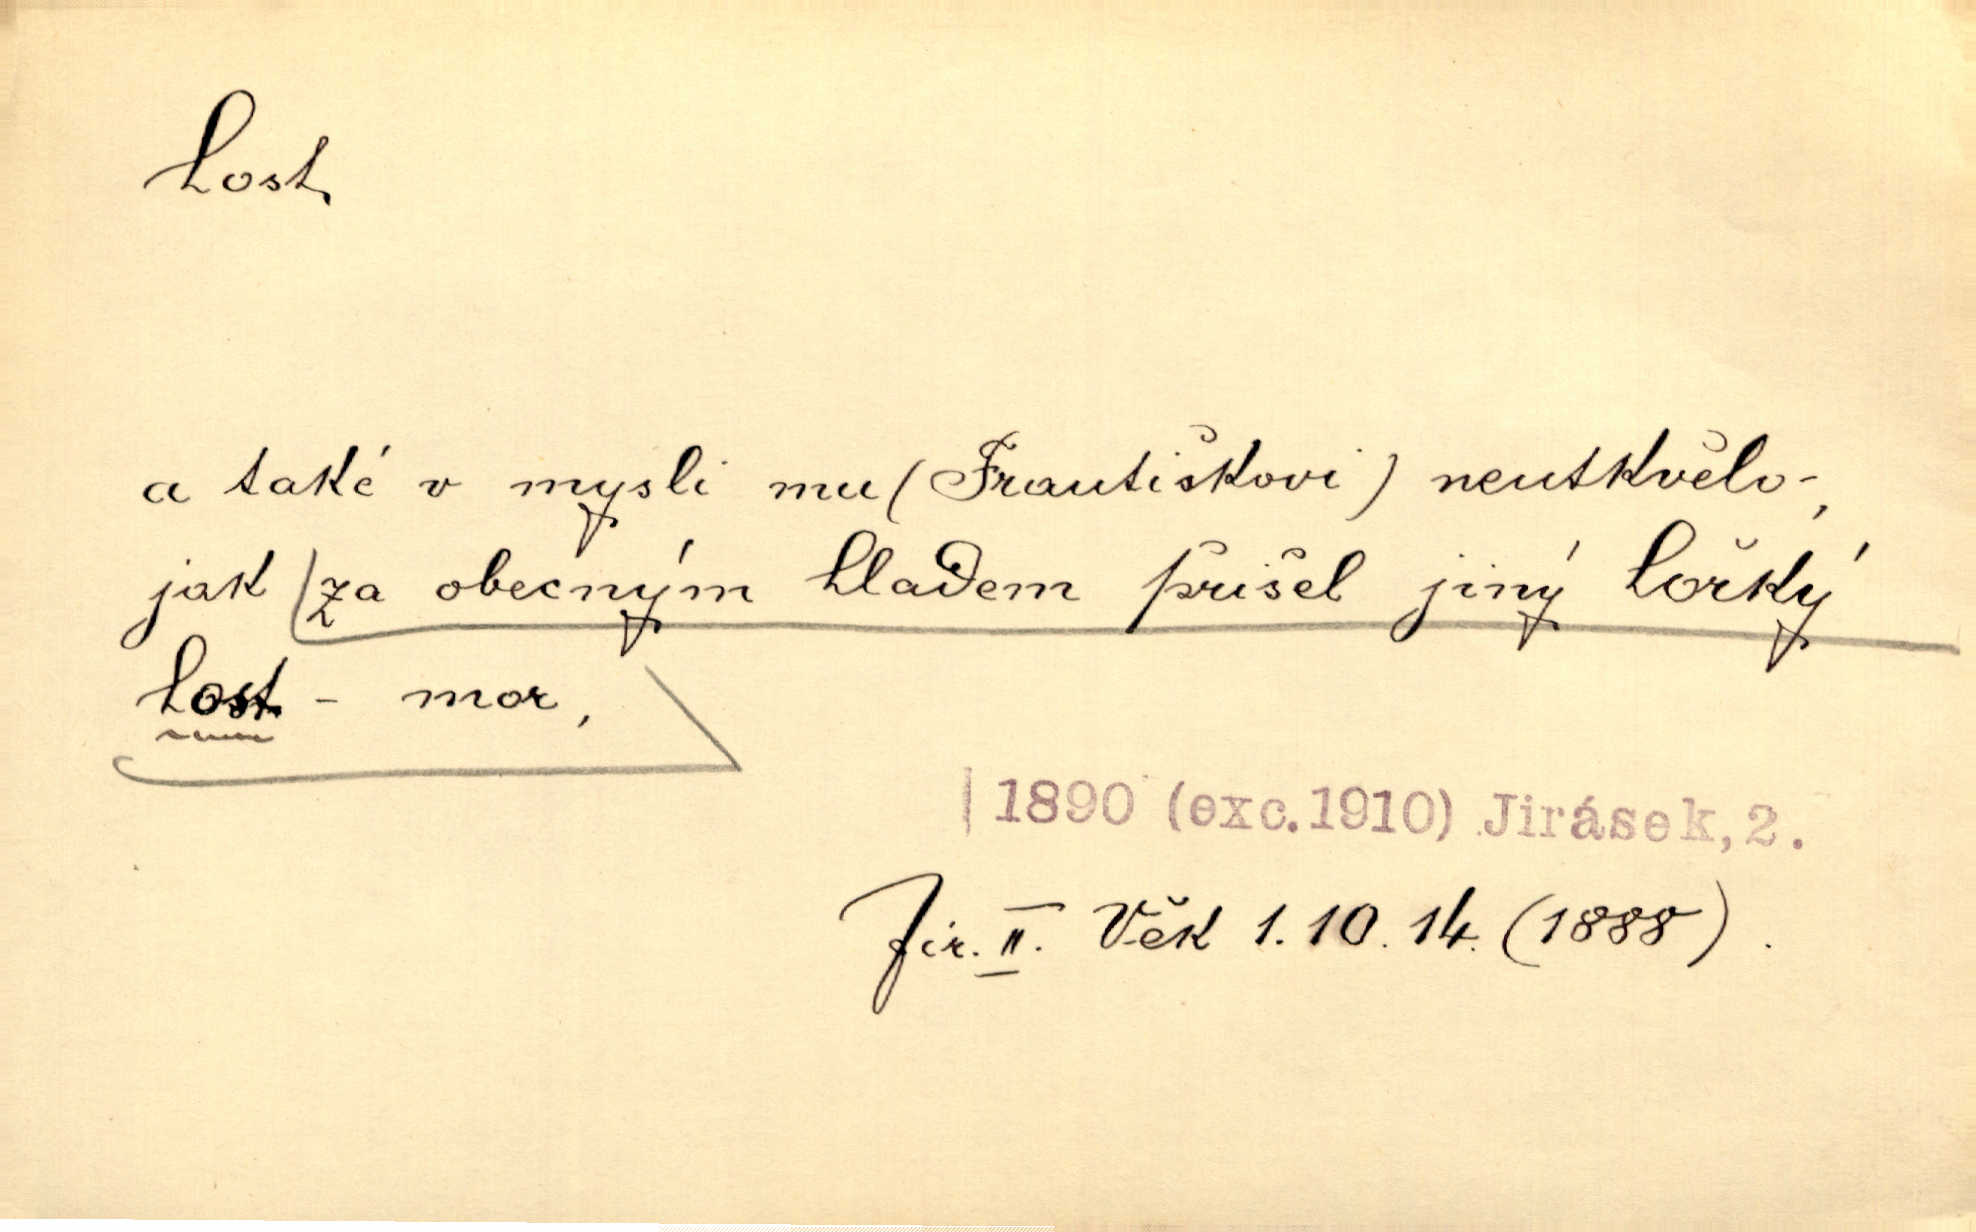 host
a také v mysli mu (Františkovi) neutkvělo-,
jak za obecným hladem přišel jiný hořký
host - mor,
1890 (exc.1910) Jirásek,2.
Jir. II. Věk 1. 10. 14. (1888).